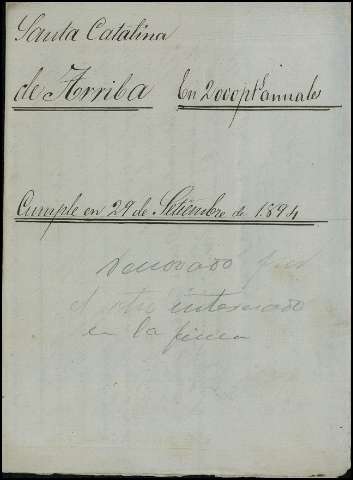 Santa Catalina
de Arriba En 2000 pts anuales
Cumple en 29 de Setiembre de 1894
renovado por
el otro interesado
en la finca